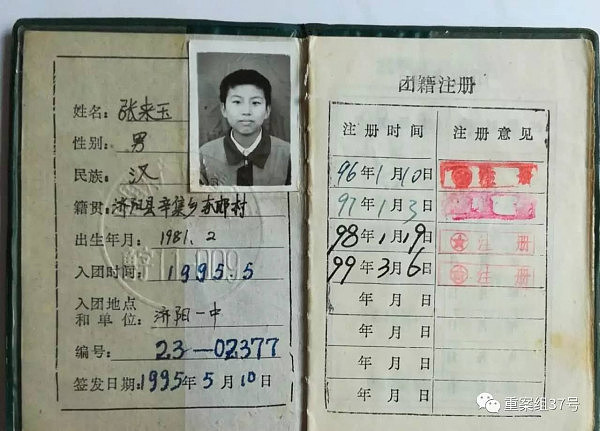 姓名：张来玉
性别：男
民族：汉
籍贯：济阳县辛集乡
出生年月：1981.2
入团时间：1995.5
入团地点
和单位：济阳一中
编号：23—02377
签发日期：1995年5月10日
团籍注册
注册时间 注册意见
96年1月10日 注册
97年1月3日
98年1月19日 注册
99年3月6日 注册
年 月 日
年 月 日
年 月 日
年 月 日
重案组37号